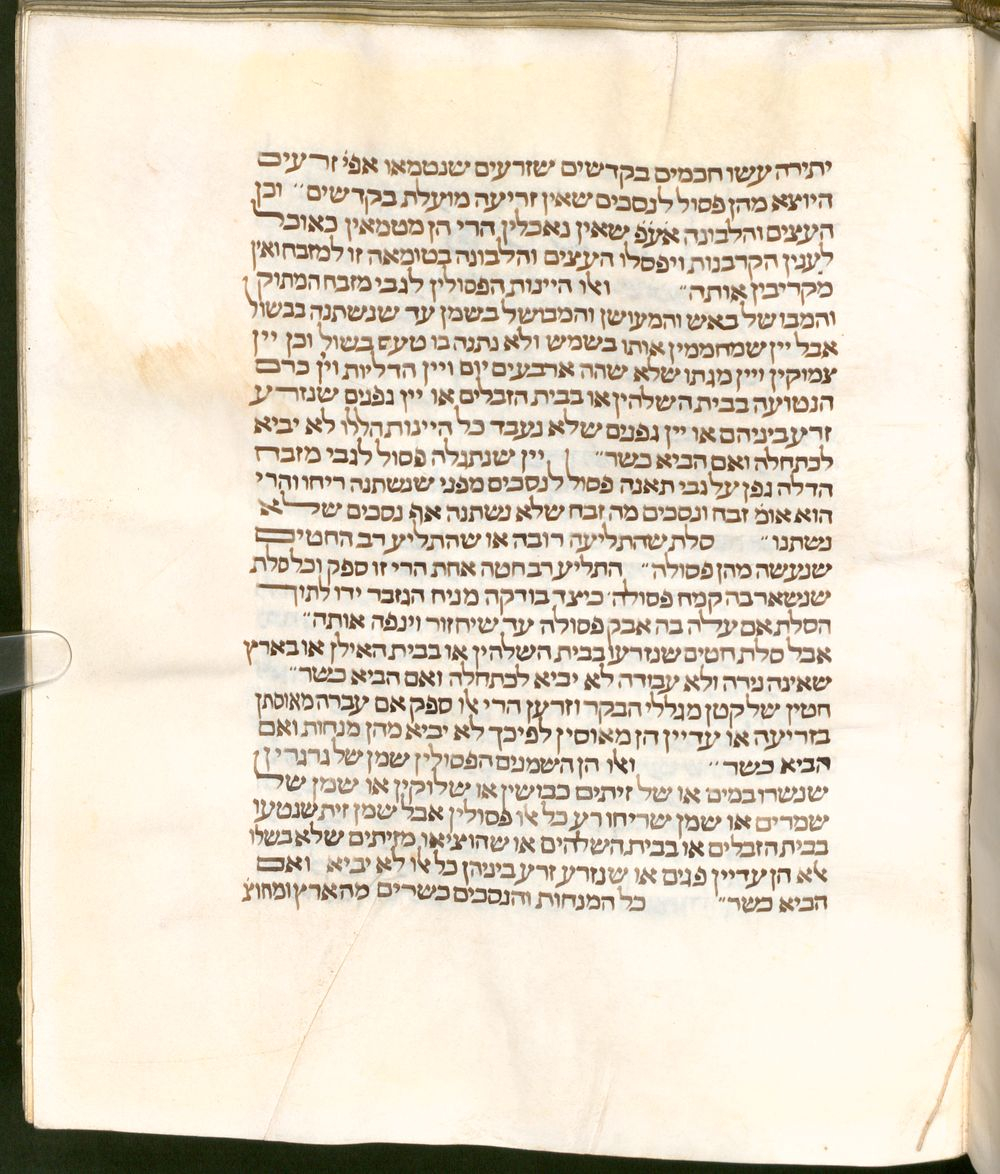 יתירה עשו חכמים בקדשים שזרעים שנטמאו אפי׳ זרעים
היוצא מהן פסול לנסכים שאין זריעה מועלת בקדשים״ וכן
העצים והלבונה אע״פ שאין נאכלין הרי הן מטמאין כאוכל
לענין הקרבנות ויפסלו העצים והלבונה בטומאה זו למזבח ואין
מקריבין אותה״ ואלו היינות הפסולין לגבי מזבח המתוק
והמבושל באש והמעושן והמבושל בשמן עד שנשתנה בבשול
אבל יין שמחממין אותו בשמש ולא נתנה בו טעם בשול וכן יין
צמוקין ויין מגתו שלא שהה ארבעים יום ויין הדליות ויין כרם
הנטועה בבית השלהין או בבית הזבלים או יין גפנים שנזרע
זרע ביניהם או יין גפנים שלא נעבד כל היינות הללו לא יביא
לכתחלה ואם הביא כשר״ יין שנתגלה פסול לגבי מזבח
הדלה גפן על גבי תאנה פסול לנסכים מפני שנשתנה ריחו והרי
הוא אומ׳ זבח ונסכים מה זבח שלא נשתנה אף נסכים שלא
נשתנו״ סלת שהתליעה רובה או שהתליע רב החטים
שנעשה מהן פסולה״ התליע רב חטה אחת הרי זו ספק וכל סלת
שנשאר בה קמח פסולה׳ כיצד בודקה מניח הגזבר ידו לתוך
הסלת אם עלה בה אבק פסולה עד שיחזור וינפה אותה״
אבל סלת חטים שנזרעו בבית השלהין או בבית האילן או בארץ
שאינה נירה ולא עבודה לא יביא לכתחלה ואם הביא כשר״
חטין של קטן מגללי הבקר וזרען הרי אלו ספק אם עברה מאוסתן
בזריעה או עדיין הן מאוסין לפיכך לא יביא מהן מנחות ואם
הביא כשר״ ואלו הן השמנים הפסולין שמן של גרגרין
שנשרו במים או של זיתים כבושין או שלוקין או שמן של
שמרים או שמן שריחו רע כל אלו פסולין אבל שמן זית שנטעו
בבית הזבלים או בבית השלהים או שהוציאו מזיתים שלא בשלו
אלא הן עדיין פגים או שנזרע זרע ביניהן כל אלו לא יביא ואם
הביא כשר״ כל המנחות והנסכים כשרים מהארץ ומחוצ׳